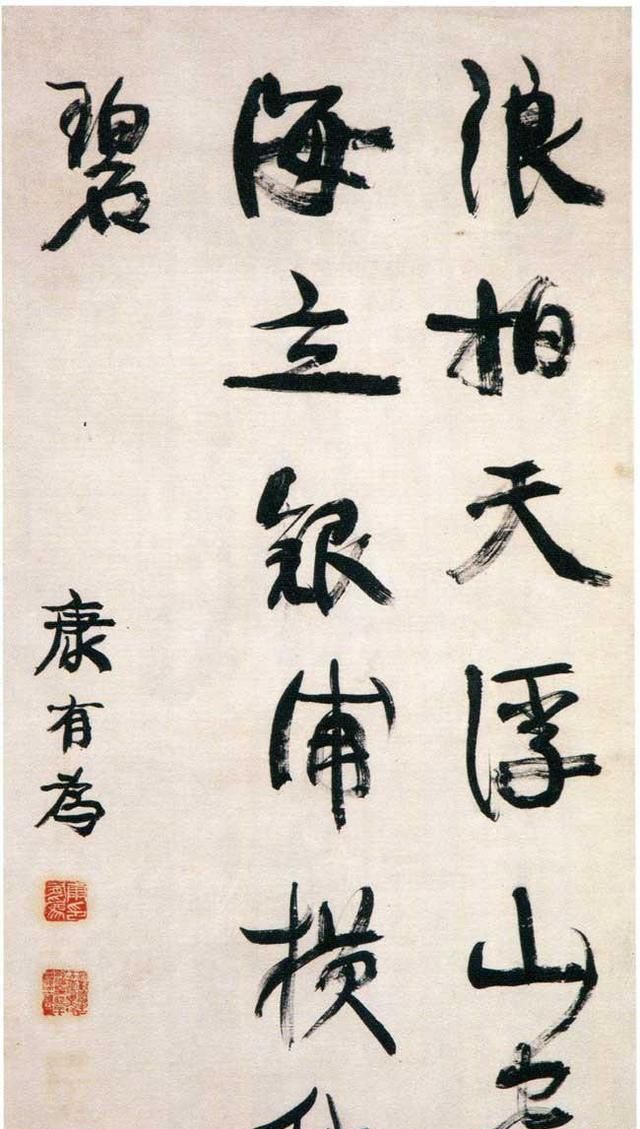 浪拍天浮山
海立銀横
碧
康有為